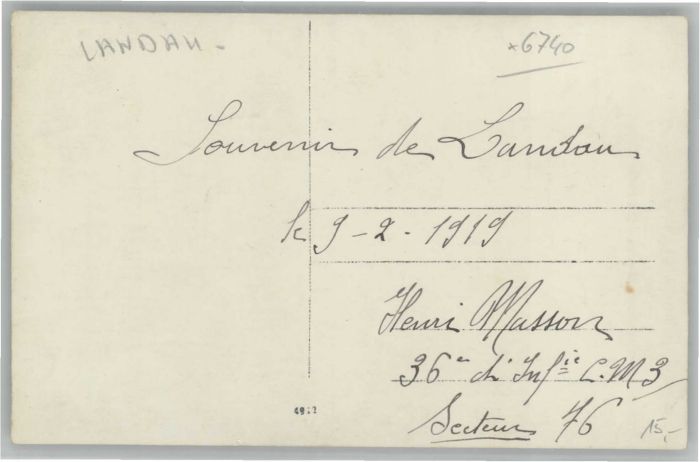 LANDAU -
x6740
Souvenir de Landau
le 9-2-1919
Henri Masson
36e d'Infie C.M3
Secteur 76
15,-